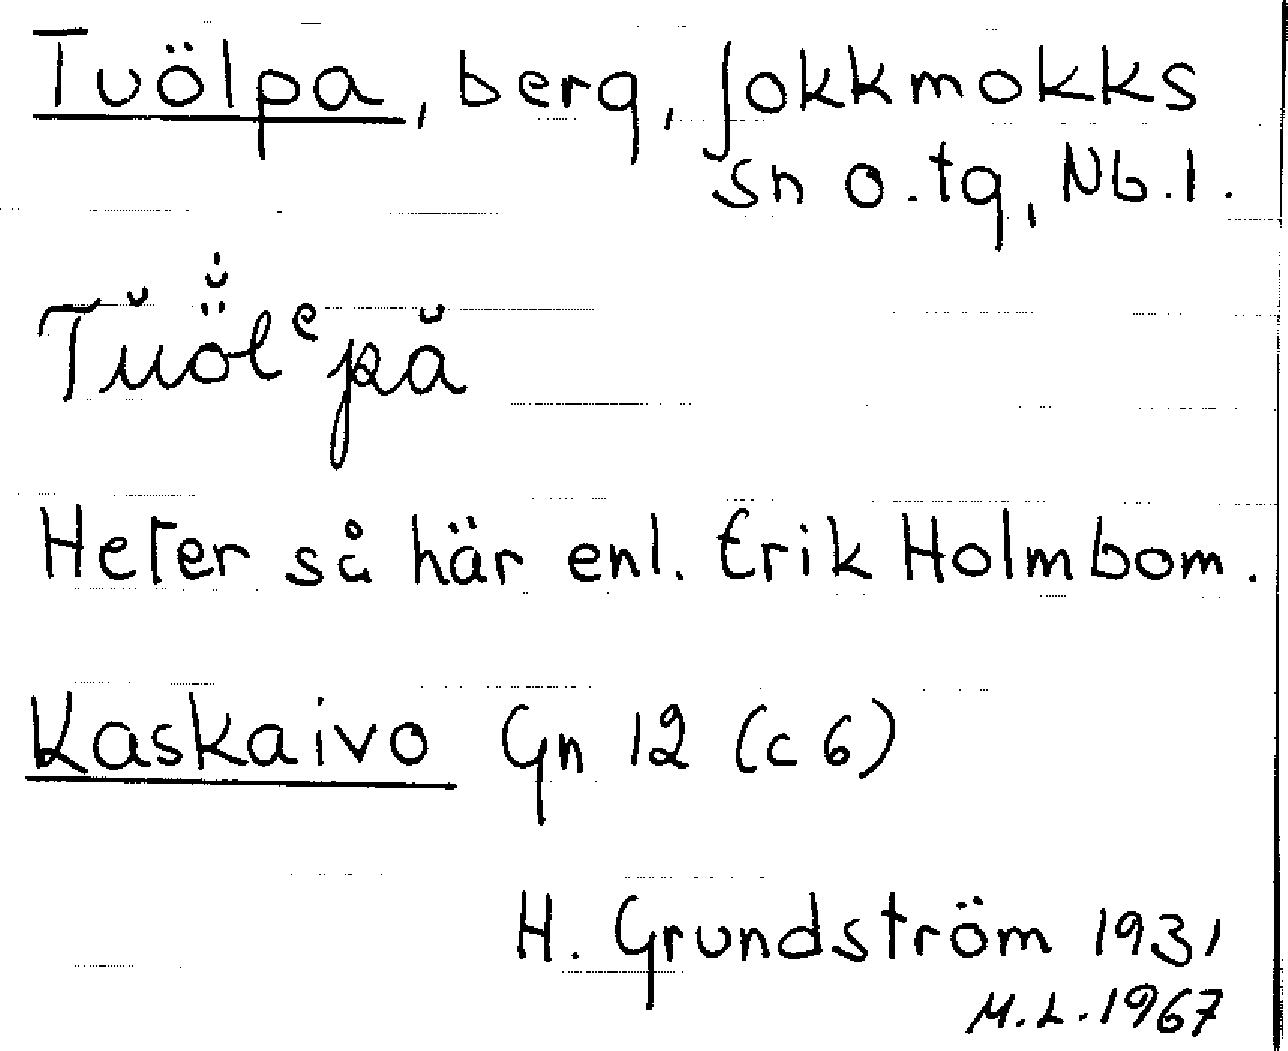 Tuölpa, berg, Jokkmokks
sn o. tg, Nb. l.
Tŭö̆lᵉpă
Heter så här enl. Erik Holmbom.
Kaskaivo Gn 12 (c 6)
H. Grundström 1931
M.L. 1967